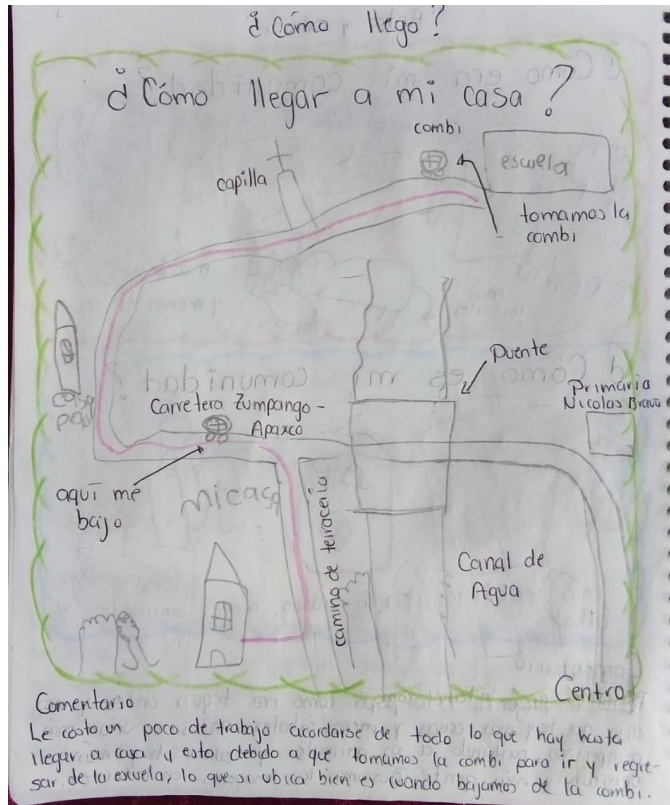 ¿Cómo llego?
¿Cómo llegar a mi casa?
combi
escuela
capilla
tomamos la
combi
Puente
Primaria
Nicolas Bravo
casa
Carretera Zumpango -
Apaxco
aquí me
bajo
mi casa
camino de terraceria
Canal de
Agua
Centro
Comentario
Le costo un poco de trabajo acordarse de todo lo que hay hasta
llegar a casa y esto debido a que tomamos la combi para ir y regre-
sar de la escuela, lo que si ubica bien es cuando bajamos de la combi.